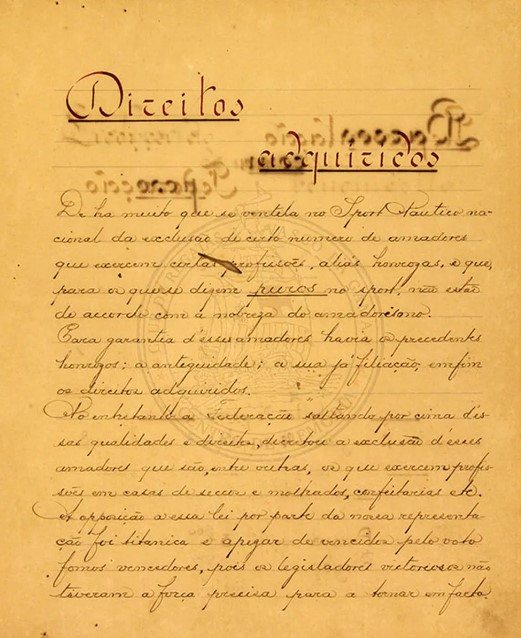 Direitos
adquiridos
De ha muito que se ventela no Sport Nautico na-
cional da exclusão de certo numero de amadores
que exercem certas profissões, aliás honrozas, e que,
para os que se dizem puros no sport, não estão
de accordo com a nobreza do amadorismo.
Para garantia d'esses amadores havia os precedentes
honrozos: a antiguidade; a sua já filiação, emfim
os direitos adquiridos.
No entretanto a Federação saltando por cima des-
sas qualidades e direitos, decretou a exclusão d'esses
amadores que são, entre outras, os que exercem profis-
sões em casas de seccos e molhados, confeitarias etc.
A opposição a essa lei por parte da nossa representa-
ção foi titanica e apezar de vencidos pelo voto
fomos vencedores, pois os legisladores victoriosos não
tiveram a força precisa para a tornar em facto